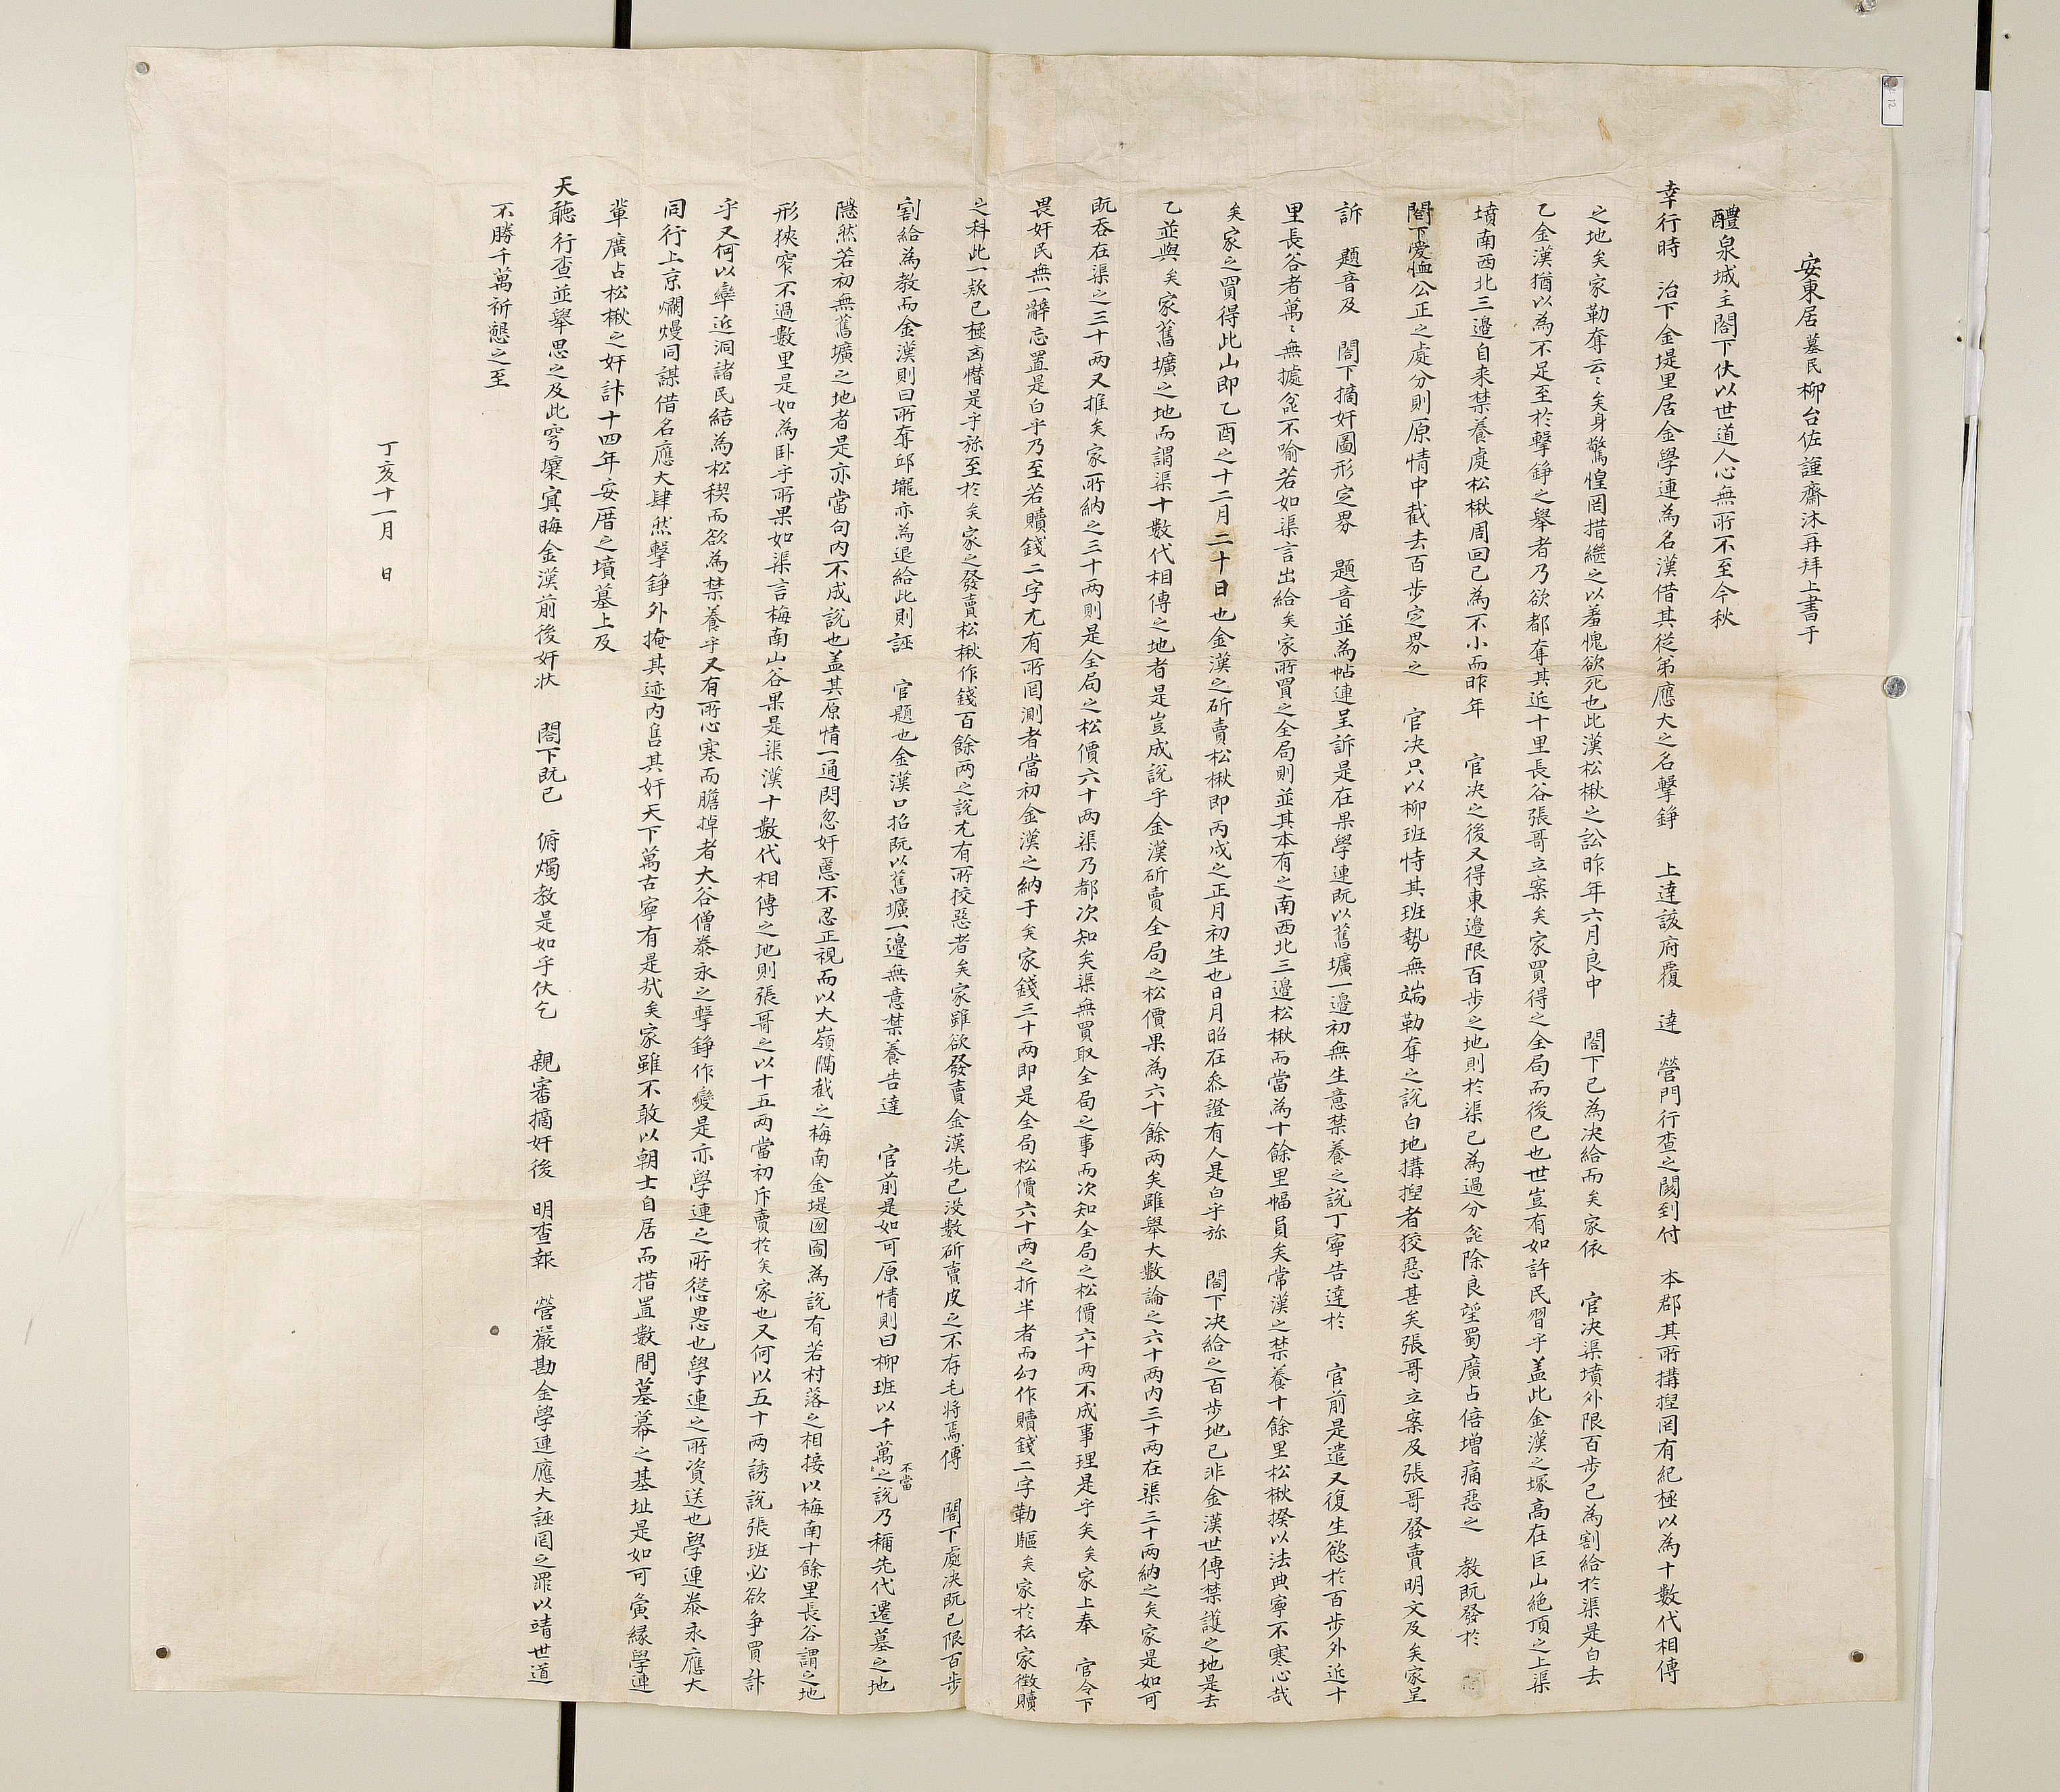 安東居墓民柳台佐謹齋沐再拜上書于
醴泉城主閤下伏以世道人心無所不至今秋
幸行時 治下金堤里居金學連為名漢借其從弟應大之名擊錚 上達該府覆 達 營門行查之關到付 本郡其所搆捏罔有紀極以為十數代相傳
之地矣家勒奪云〻矣身驚惶罔措繼之以羞愧欲死也此漢松楸之訟昨年六月良中 閤下已為決給而矣家依 官決渠墳外限百步已為割給於渠是白去
乙金漢猶以為不足至於擊錚之舉者乃欲都奪其近十里長谷張哥立案矣家買得之全局而後已也世豈有如許民習乎盖此金漢之塚高在巨山絶頂之上渠
墳南西北三邊自来禁養處松楸周回已為不小而昨年 官決之後又得東邊限百步之地則於渠已為過分叱除良望蜀廣占倍增痛惡之 教旣發於
閤下愛恤公正之處分則原情中截去百步定界之 官決只以柳班恃其班勢無端勒奪之說白地搆捏者狡惡甚矣張哥立案及張哥發賣明文及矣家呈
訴 題音及 閤下摘奸圖形定界 題音並為帖連呈訴是在果學連旣以舊壙一邊初無生意禁養之說丁寧告達於 官前是遣又復生慾於百步外近十
里長谷者萬〻無據叱不喻若如渠言出給矣家所買之全局則並其本有之南西北三邊松楸而當為十餘里幅員矣常漢之禁養十餘里松楸揆以法典寧不寒心哉
矣家之買得此山即乙酉之十二月二十日也金漢之斫賣松楸即丙戌之正月初生也日月昭在叅證有人是白乎旀 閤下決給之百步地已非金漢世傳禁護之地是去
乙並與矣家舊壙之地而謂渠十數代相傳之地者是豈成說乎金漢斫賣全局之松價果為六十餘兩矣雖舉大數論之六十兩內三十兩在渠三十兩納之矣家是如可
旣吞在渠之三十兩又推矣家所納之三十兩則是全局之松價六十兩渠乃都次知矣渠無買取全局之事而次知全局之松價六十兩不成事理是乎矣矣家上奉 官令下
畏奸民無一辭忘置是白乎乃至若贖錢二字尤有所罔測者當初金漢之納于矣家錢三十兩即是全局松價六十兩之折半者而幻作贖錢二字勒驅矣家於私家徵贖
之科此一款已極凶憯是乎旀至於矣家之發賣松楸作錢百餘兩之說尤有所狡惡者矣家雖欲發賣金漢先已沒數斫賣皮之不存毛將焉傅 閤下處決旣已限百步
割給為教而金漢則曰所奪邱壠亦為退給此則誣 官題也金漢口招旣以舊壙一邊無意禁養告達 官前是如可原情則曰柳班以千萬不當之說乃稱先代遷墓之地
隱然若初無舊壙之地者是亦當句內不成說也盖其原情一通閃忽奸慝不忍正視而以大嶺隔截之梅南金堤囫圇為說有若村落之相接以梅南十餘里長谷謂之地
形狹窄不過數里是如為卧乎所果如渠言梅南山谷果是渠漢十數代相傳之地則張哥之以十五兩當初斥賣於矣家也又何以五十兩誘說張班必欲爭買計
乎又何以率近洞諸民結為松稧而欲為禁養乎又有所心寒而膽掉者大谷僧泰永之擊錚作變是亦學連之所慫恿也學連之所資送也學連泰永應大
同行上京爛熳同謀借名應大肆然擊錚外掩其迹內售其奸天下萬古寧有是哉矣家雖不敢以朝士自居而措置數間墓幕之基址是如可夤緣學連
輩廣占松楸之奸計十四年安厝之墳墓上及
天聽行查並舉思之及此穹壤寘晦金漢前後奸狀 閤下旣已 俯燭教是如乎伏乞 親審摘奸後 明查報 營嚴勘金學連應大誣罔之罪以靖世道
不勝千萬祈懇之至
丁亥十一月 日